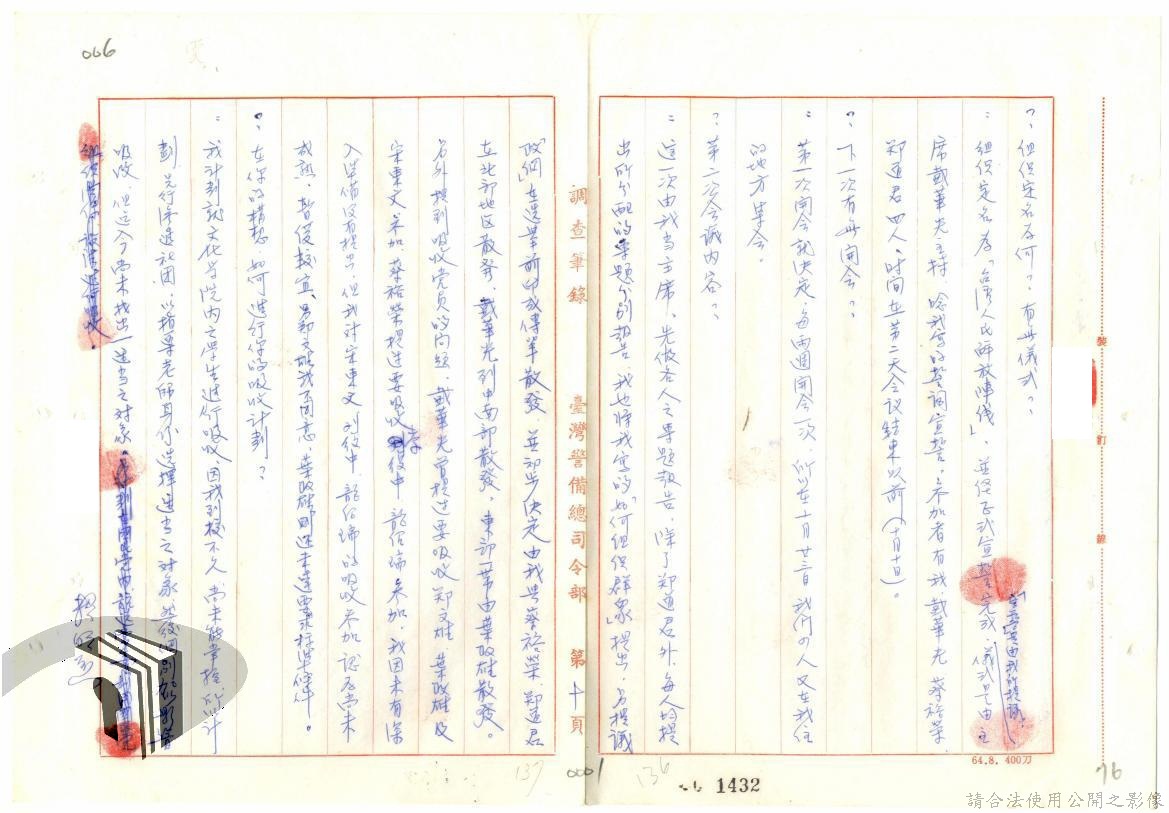 006
？：組織定名為何？有無儀式？
：組織定名為「台灣人民解放陣線」，並經正式宣誓完成，儀式是由主
席戴華光主持，唸我寫的誓詞宣誓。參加者有我、戴華光、蔡裕榮、
鄭道君四人。時間在第二天會議結束以前
？：下一次有無開會？
：第一次開會就決定每兩週開會一次，所以在十月廿三日我們四人又在我住
的地方集會。
？：第二次會議內容？
：這一次由我當主席，先做各人之專題報告，除了鄭道君外，每人均提
出所分配的專題分別報告，我也將我寫的「如何組織群眾」提出，另提議
調查筆錄
臺灣警備總司令部
第十頁
裝
訂
線
64.8. 400刀
政綱」在選舉前印成傳單散發，並初步決定由我與蔡裕榮、鄭道君
在北部地區散發，戴華光到中南部散發，東部一帶由葉敬雄散發。
另外提到吸收党員的問題，戴華光曾提過要吸收鄭文雄、葉敬雄及
宋東文參加，蔡裕榮提過要吸收 中、龍伯瑞參加，我因未有深
入準備沒有提出，但我對宋東文、劉 中、龍伯瑞的吸收參加認為尚未
成熟，暫緩較宜，
？：在你的構想，如何進行你的吸收計劃？
：我計劃就文化學院內之學生進行吸收，因我到校不久，尚未能掌握，所以計
劃先行深造社團，以指導老師身份選擇適當之對象，然後個別
吸收，但迄今尚未找出一適當之對象。
137
0001
136
1432
76
請合法使用公開之影像